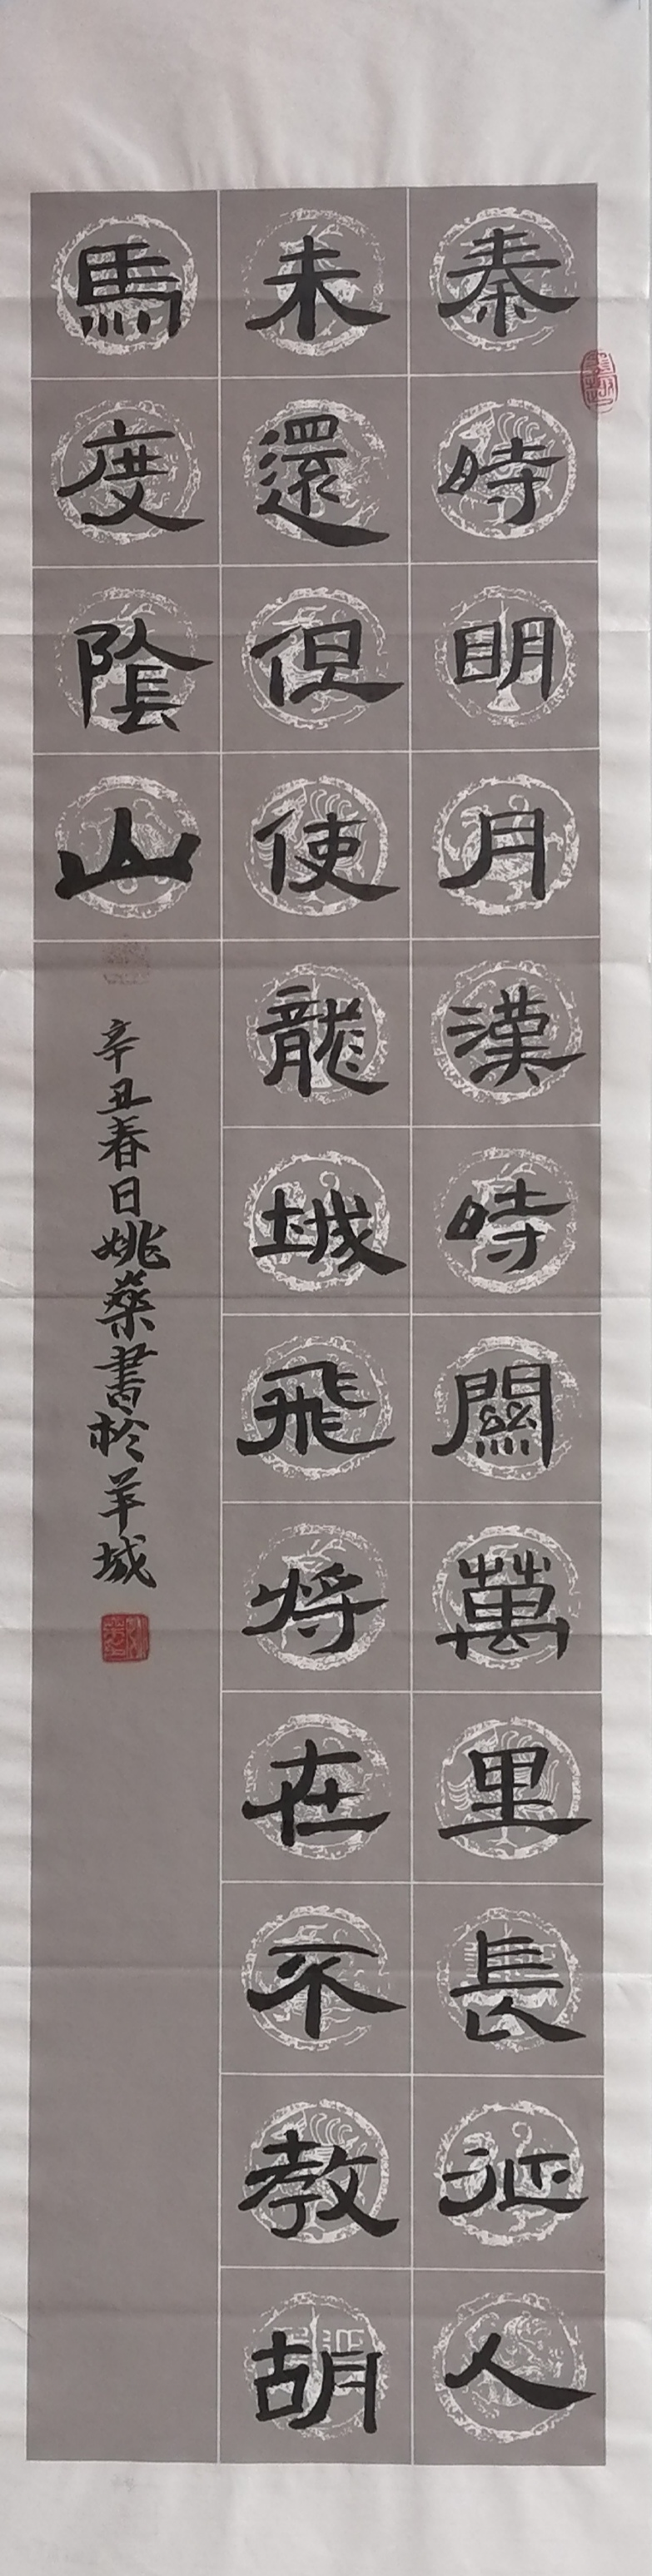 秦時明月漢時關萬里長征人
未還但使龍城飛將在不教胡
馬度陰山
辛丑春日姚燊書於羊城